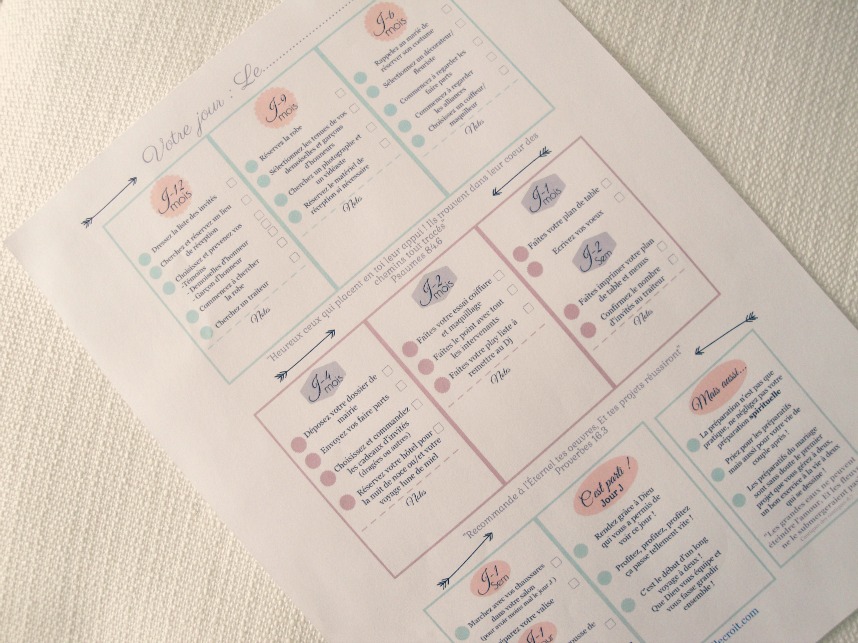 Votre jour : Le...............................
J-12
mois
Dressez la liste des invités
Cherchez et réservez un lieu
de réception
Choisissez et prévenez vos
-Témoins
-Demoiselles d'honneur
-Garçon d'honneur
Commencez à chercher
la robe
Cherchez un traiteur
Noto
J-9
mois
Réservez la robe
Sélectionnez les tenues de vos
demoiselles et garçons
d'honneurs
Cherchez un photographe et
un vidéaste
Réservez le matériel de
réception si nécessaire
Noto
J-6
mois
Rappelez au marié de
réserver son costume
Sélectionnez un décorateur/
fleuriste
Commencez à regarder les
faire parts
Commencez à regarder
les alliances
Choisissez un coiffeur/
maquilleur
Noto
"Heureux ceux qui placent en toi leur appui! Ils trouvent dans leur coeur des
chemins tout tracés"
Psaumes 84.6
J-4
mois
Déposez votre dossier de
mairie
Envoyez vos faire parts
Choisissez et commandez
les cadeaux d'invités
(dragées ou autres)
Réservez votre hôtel pour
la nuit de noce ou/et votre
voyage lune de miel
Noto
J-2
mois
Faites votre essai coiffure
et maquillage
Faites le point avec tout
les intervenants
Faites votre play liste à
remettre au Dj
Noto
J-1
mois
Faites votre plan de table
Ecrivez vos voeux
J-2
Sem
Faites imprimer votre plan
de table et menus
Confirmez le nombre
d'invités au traiteur
Noto
"Recommande à l'Éternel tes oeuvres, Et tes projets réussiront"
Proverbes 16.3
J-1
Sem
Marchez avec vos chaussures
dans votre salon
(pour avoir moins mal le jour J)
votre valise
J-1
C'est parti !
Jour J
Rendez grâce à Dieu
qui vous a permis de
voir ce jour !
Profitez, profitez, profitez
ça passe tellement vite !
C'est le début d'un long
voyage à deux !
Que Dieu vous équipe et
vous fasse grandir
ensemble !
Mais aussi...
La préparation n'est pas que
pratique, ne négligez pas votre
préparation spirituelle
Priez pour les préparatifs
mais aussi pour votre vie de
couple après !
Les préparatifs du mariage
sont sans doute le premier
projet que vous gérez à deux,
un bon exercice à la vie à deux
qui se dessine !
"Les grandes eaux ne peuvent
éteindre l'amour, Et les fleuves
ne le submergeraient pas
.com